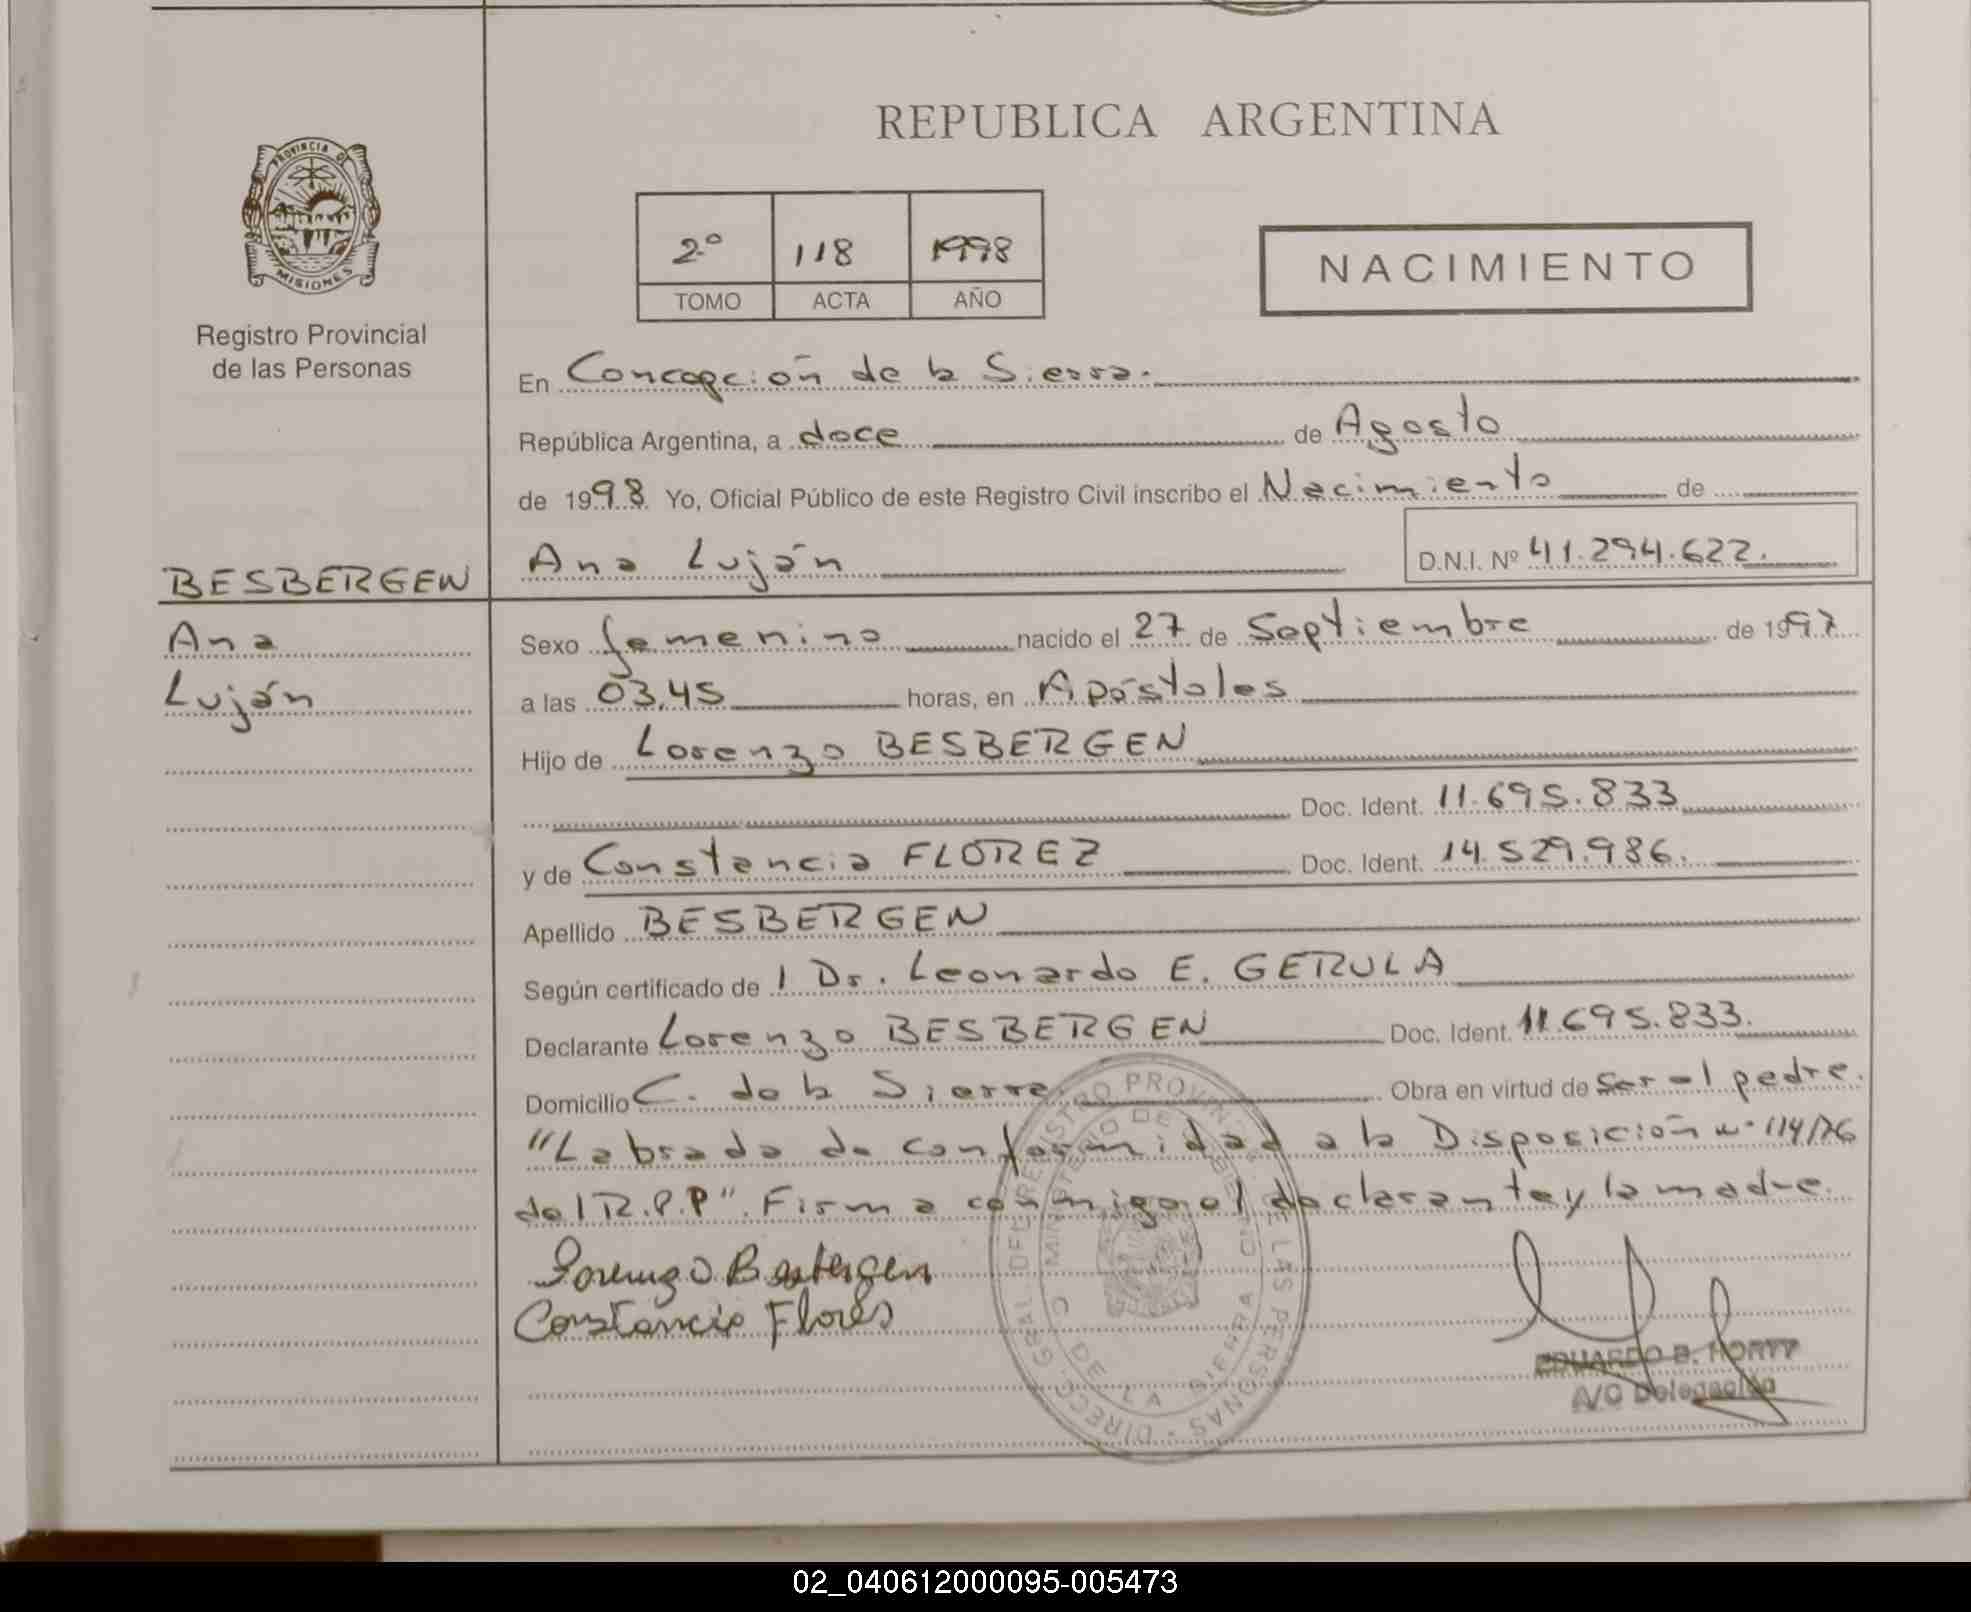 REPUBLICA ARGENTINA
PROVINCIA DE
MISIONES
Registro Provincial
de las Personas
2º 118 1998
TOMO ACTA AÑO
NACIMIENTO
En Concepción de la Sierra.
República Argentina, a doce de Agosto
de 1998 Yo, Oficial Público de este Registro Civil inscribo el Nacimiento de
BESBERGEN
Ana Luján
D.N.I. Nº 41.294.622.
Ana
Luján
Sexo femenino nacido el 27 de Septiembre de 1997
a las 03,45 horas, en Apóstoles
Hijo de Lorenzo BESBERGEN
Doc. Ident. 11.695.833
y de Constancia FLOREZ Doc. Ident. 14.529.986.
Apellido BESBERGEN
Según certificado de 1 Dr. Leonardo E. GERULA
Declarante Lorenzo BESBERGEN Doc. Ident. 11.695.833.
Domicilio C. de la Sierra Obra en virtud de ser el padre.
"Labrada de conformidad a la Disposición nº 114/76
del R.P.P". Firma conmigo el declarante y la madre.
Lorenzo Besbergen
Constancio Flores
DIRECC. GRAL. DEL REGISTRO PROVINC. DE LAS PERSONAS
MINISTERIO DE GOBIERNO
C. DE LA SIERRA
EDUARDO B.
A/C Delegación
02_040612000095-005473